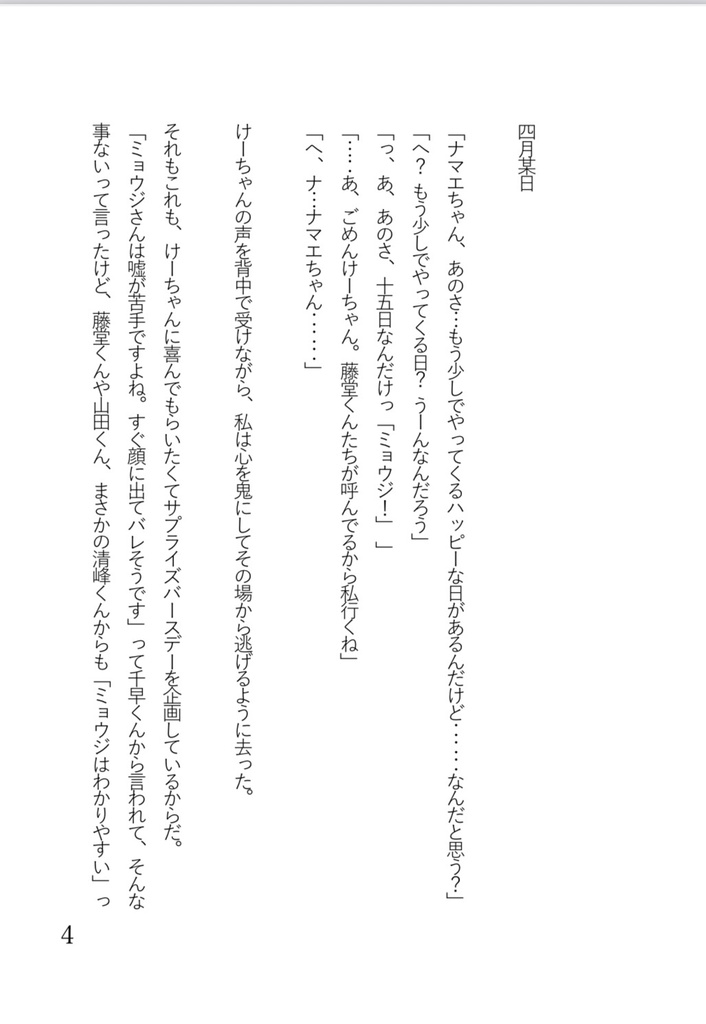 四月某日
「ナマエちゃん、あのさ…もう少しでやってくるハッピーな日があるんだけど……なんだと思う？」
「へ？ もう少しでやってくる日？ うーんなんだろう」
「っ、あ、あのさ、十五日なんだけっ「ミョウジ！」」
「……あ、ごめんけーちゃん。藤堂くんたちが呼んでるから私行くね」
「へ、ナ…ナマエちゃん……」
けーちゃんの声を背中で受けながら、私は心を鬼にしてその場から逃げるように去った。
それもこれも、けーちゃんに喜んでもらいたくてサプライズバースデーを企画しているからだ。
「ミョウジさんは嘘が苦手ですよね。すぐ顔に出てバレそうです」って千早くんから言われて、そんな
事ないって言ったけど、藤堂くんや山田くん、まさかの清峰くんからも「ミョウジはわかりやすい」っ
4